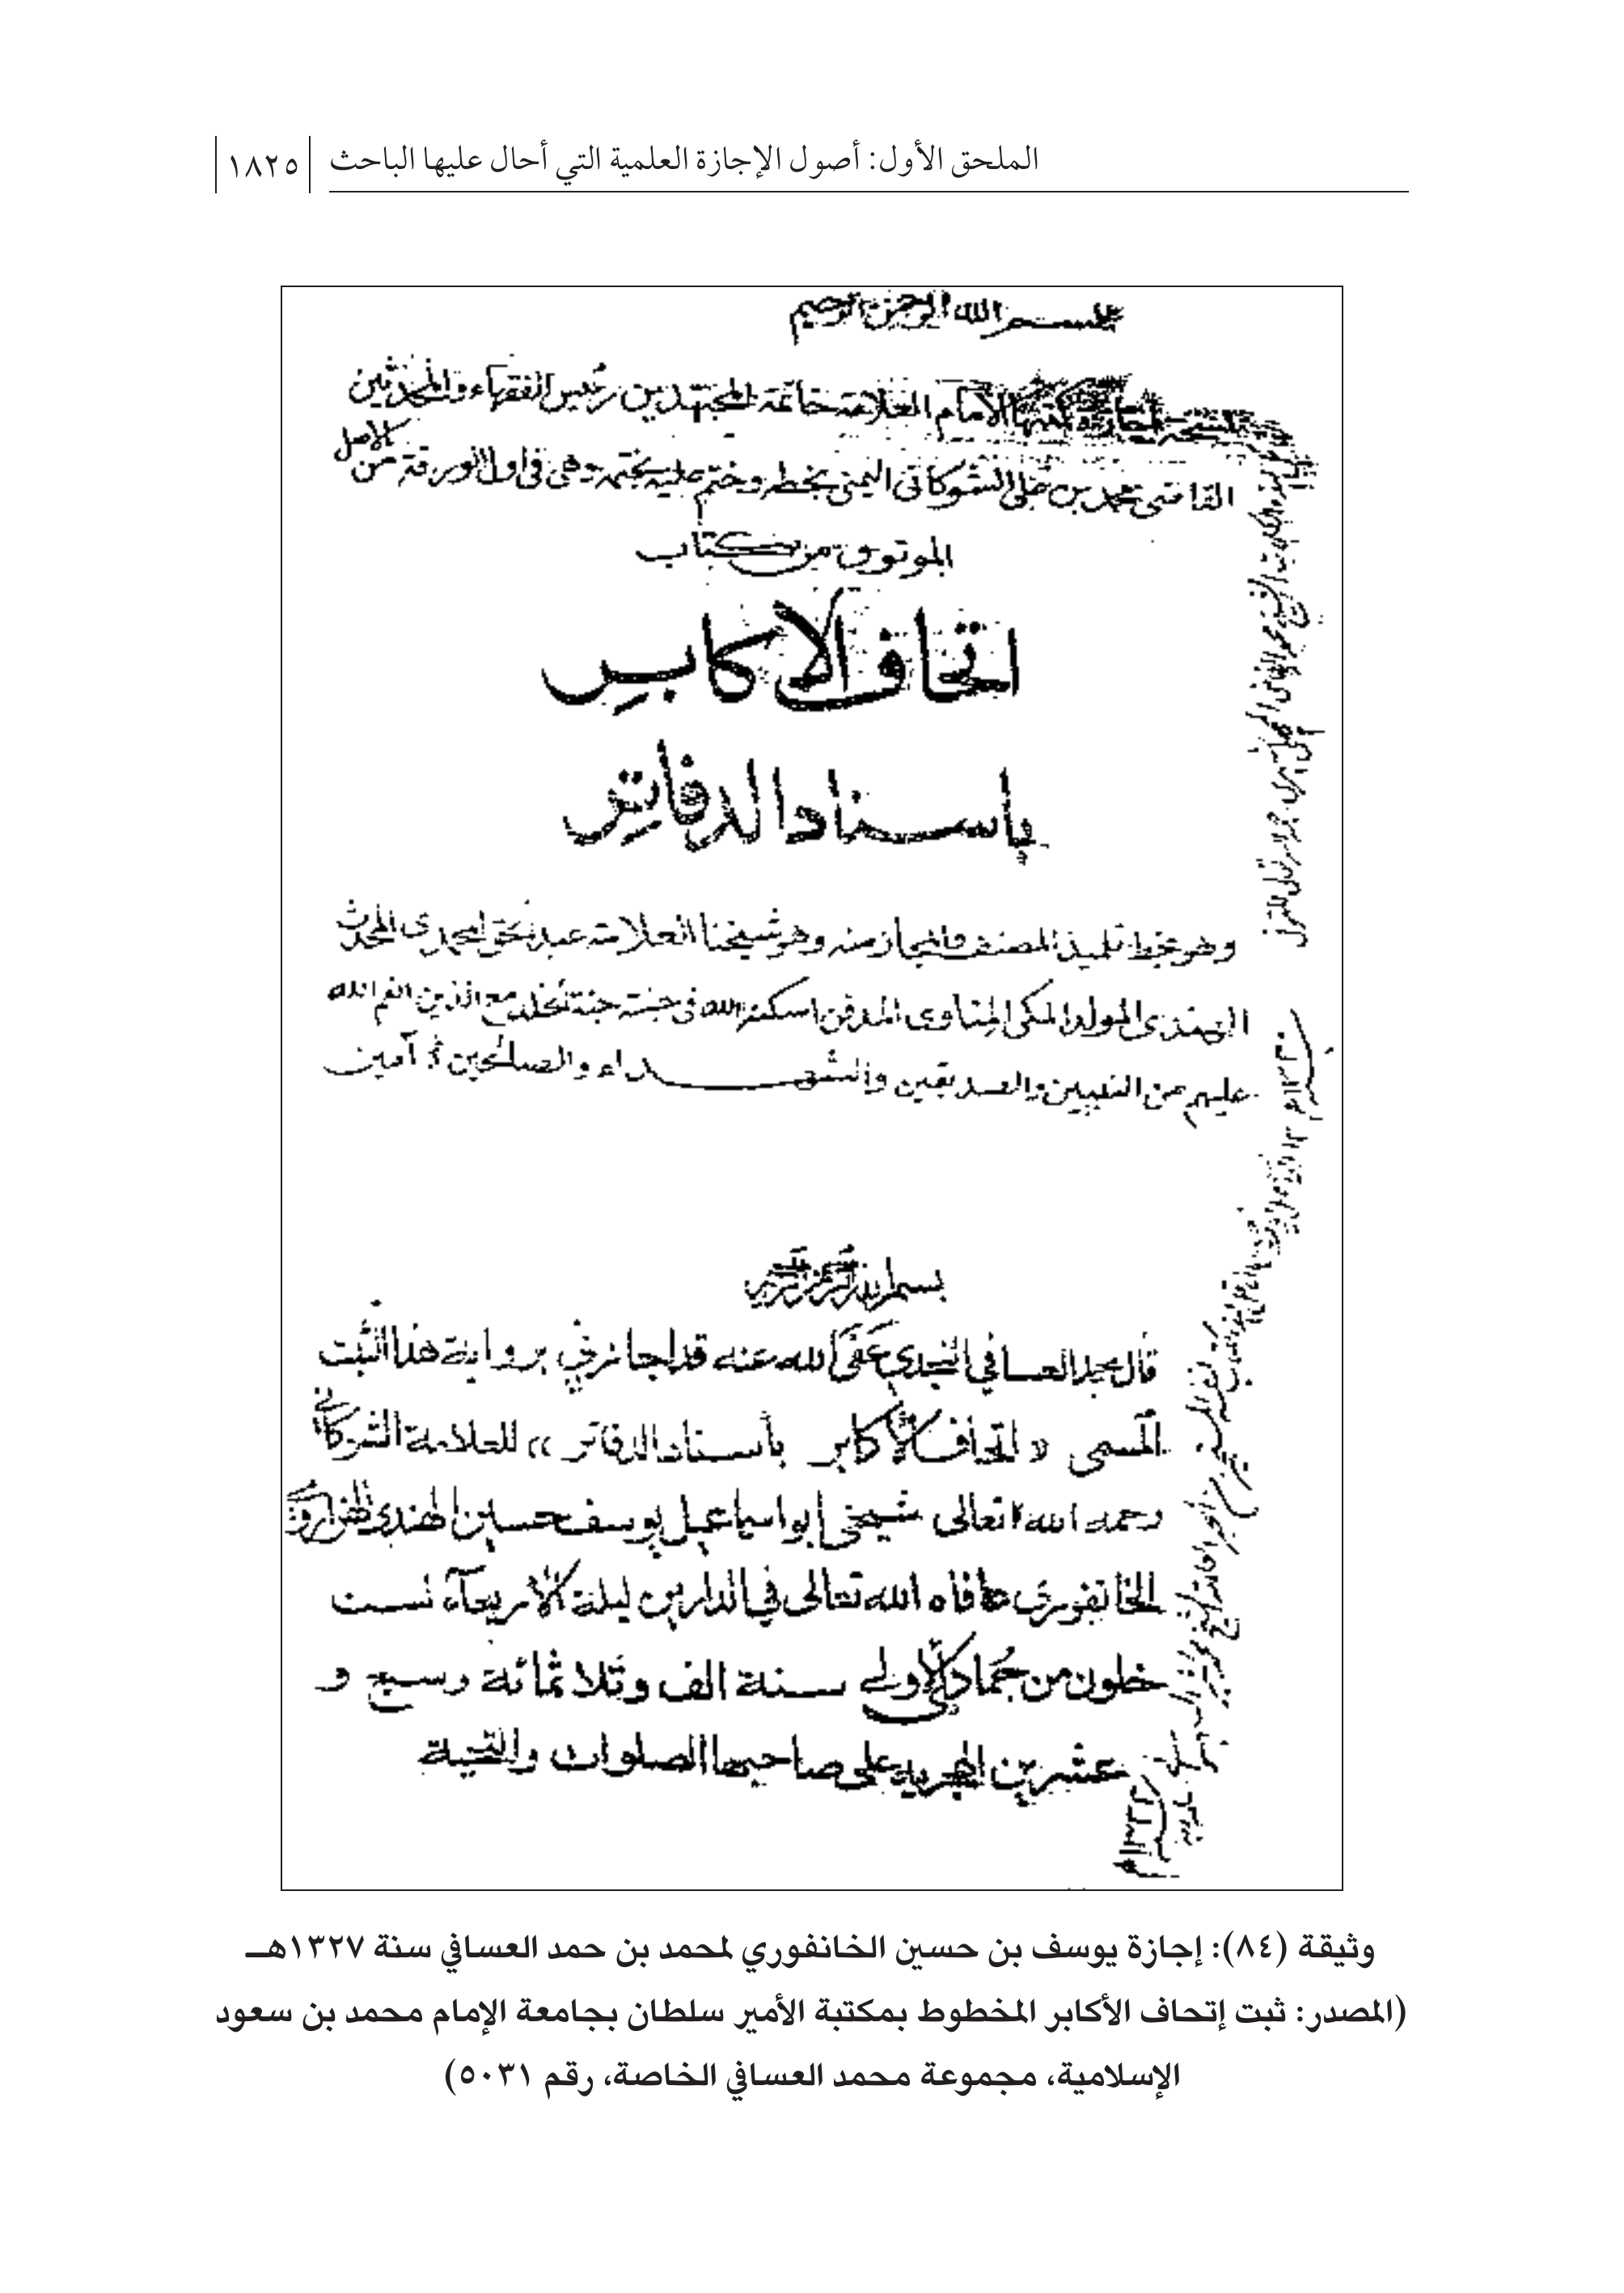 الملحق الأول: أصول الإجازة العلمية التي أحال عليها الباحث ١٨٢٥
بسم الله الرحمن الرحيم
الإمام العلامة خاتمة المجتهدين رئيس الفقهاء والمحدثين
القاضي محمد بن علي الشوكاني اليمني بخطه وختم عليه بختمه وهي في اول الورقة من الاصل
الموثوق من كتاب
اتحاف الاكابر
باسناد الدفاتر
وهو بخط تلميذ المصنف والمجاز منه وهو شيخنا العلامة عبد الحق المحمدي المحدث
الهندي المولد المكي المناوي المدفن اسكنه الله في جنته جنة الخلد مع الذين انعم الله
عليهم من النبيين والصديقين والشهداء والصالحين آمين
بسم الله الرحمن الرحيم
قال محمد العسافي النجدي عفى الله عنه قد اجازني بروايته هذا الثبت
المسمى «اتحاف الأكابر بأسناد الدفاتر» للعلامة الشوكاني
رحمه الله تعالى شيخي أبو اسماعيل يوسف حسين الهندي الهزاروي
الخانفوري عافاه الله تعالى في الدارين ليلة الأربعآء لست
خلون من جمادى الأولى سنة الف وثلاثمائة وسبع و
عشرين الهجرية على صاحبها الصلوات والتحية
وثيقة (٨٤): إجازة يوسف بن حسين الخانفوري لمحمد بن حمد العسافي سنة ١٣٢٧هـ
(المصدر: ثبت إتحاف الأكابر المخطوط بمكتبة الأمير سلطان بجامعة الإمام محمد بن سعود
الإسلامية، مجموعة محمد العسافي الخاصة، رقم ٥٠٣١)